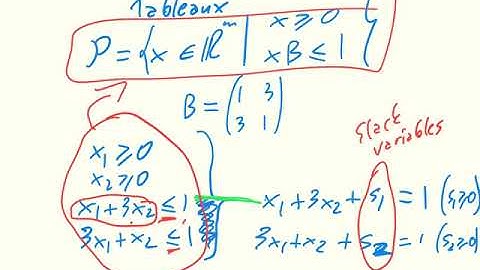 Tableaux
P = {x ∈ ℝᵐ | x ≥ 0
xB ≤ 1}
B = (1 3
3 1)
slack
variables
x₁ ≥ 0
x₂ ≥ 0
x₁ + 3x₂ ≤ 1
3x₁ + x₂ ≤ 1
x₁ + 3x₂ + s₁ = 1 (s₁ ≥ 0)
3x₁ + x₂ + s₂ = 1 (s₂ ≥ 0)